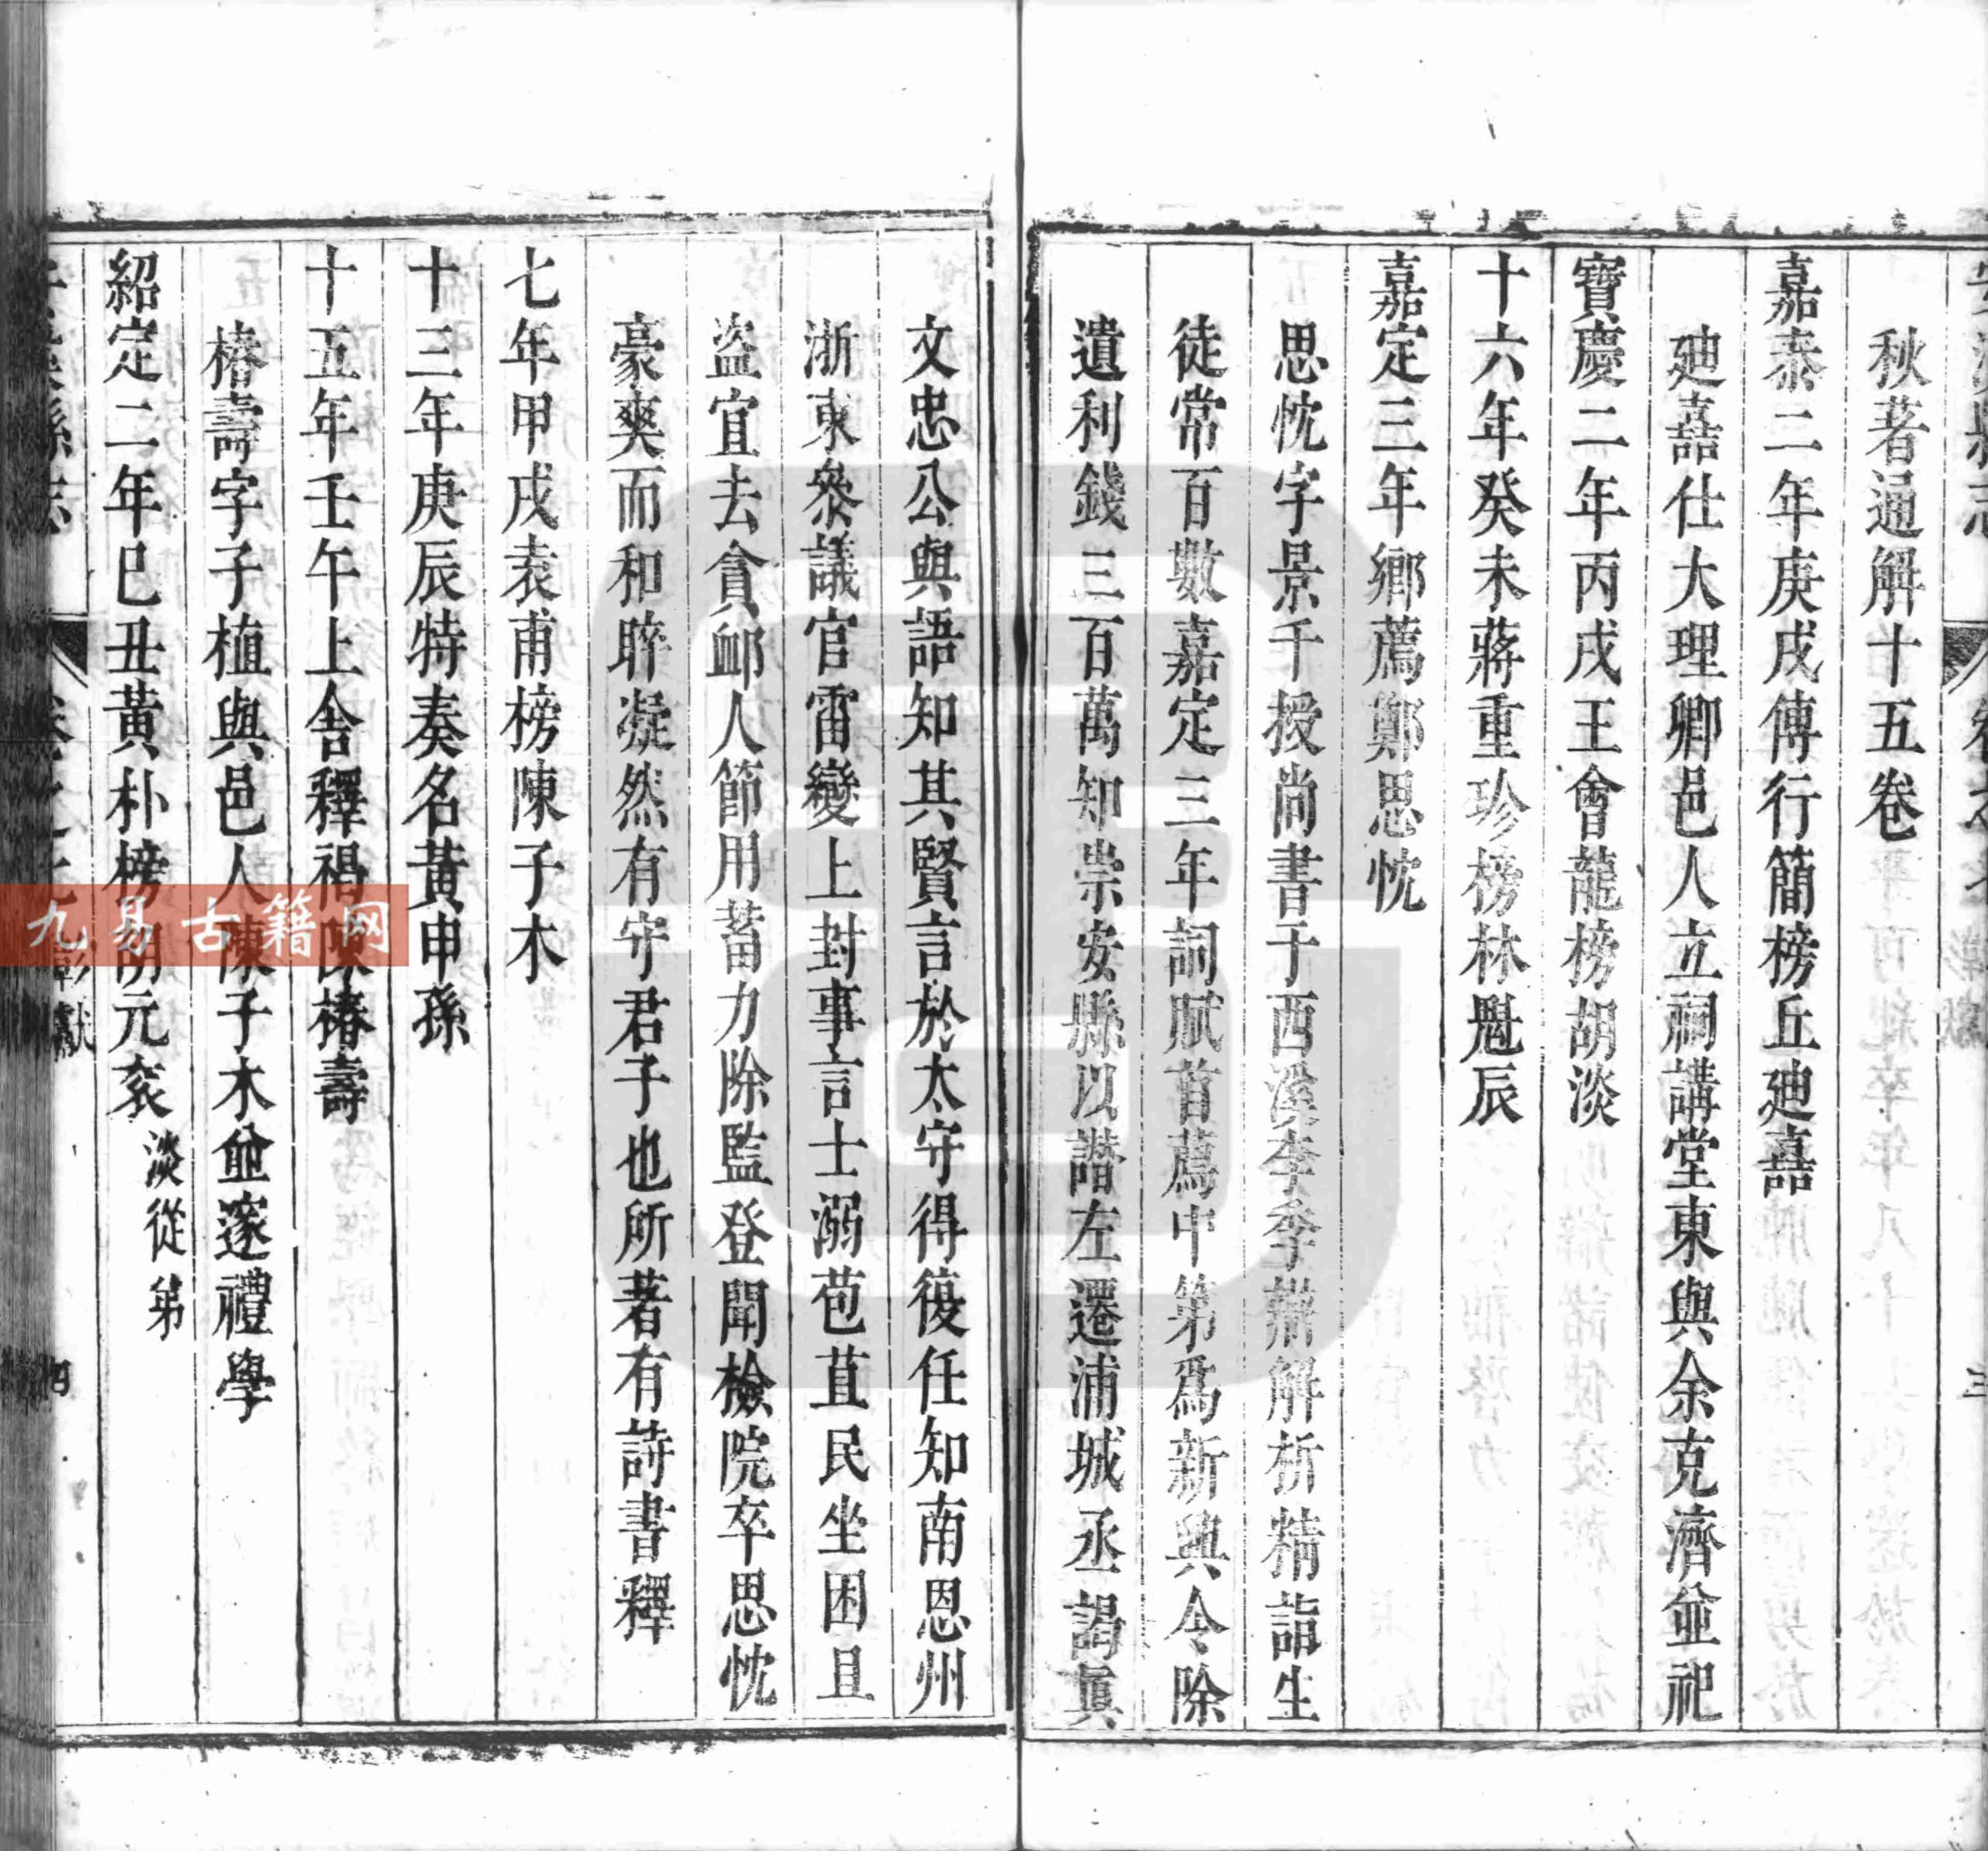 秋著通解十五卷
嘉泰二年庚戌傅行簡榜丘廸嚞
廸嚞仕大理卿邑人立祠講堂東與余克濟並祀
寶慶二年丙戌王會龍榜胡淡
十六年癸未蔣重珍榜林魁辰
嘉定三年鄉薦鄭思忱
思忱字景千授尚書于西溪李季辯解析精詣生
徒常百數嘉定三年詞賦首薦中第爲新興令除
遺利錢三百萬知崇安縣以譖左遷浦城丞謁眞
文忠公與語知其賢言於太守得復任知南恩州
浙東參議官雷變上封事言士溺苞苴民坐困且
盜宜去貪䘏人節用蓄力除監登聞檢院卒思忱
豪爽而和睟凝然有守君子也所著有詩書釋
七年甲戌袁甫榜陳子木
十三年庚辰特奏名黃申孫
十五年壬午上舍釋褐陳椿壽
椿壽字子植與邑人陳子木並邃禮學
紹定二年巳丑黃朴榜胡元衮 淡從弟
彭獻
四
九易古籍网